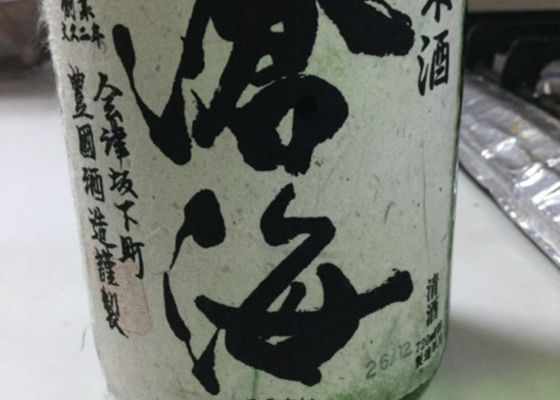 米酒
滄海
創業
文久二年
会津坂下町
豊國酒造謹製
清酒
26/12
720ml